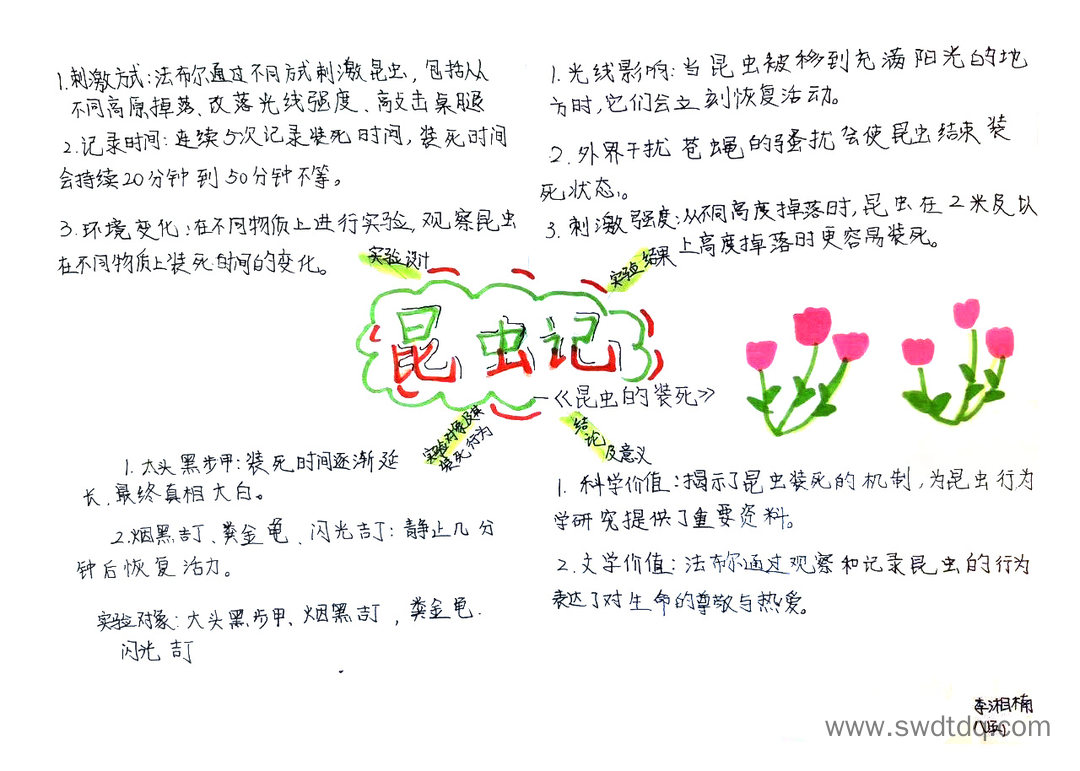 1.刺激方式:法布尔通过不同方式刺激昆虫,包括从
不同高原掉落、改落光线强度、高敲击桌腿
2.记录时间:连续5次记录装死时间,装死时间
会持续20分钟到50分钟不等。
3.环境变化:在不同物质上进行实验,观察昆虫
在不同物质上装死时间的变化。
实验设计
1.光线影响:当昆虫被移到充满阳光的地
方时,它们会立刻恢复活动。
2.外界干扰 苍蝇的骚扰会使昆虫结束装
死状态。
3.刺激强度:从不同高度掉落时,昆虫在2米及以
上高度掉落时更容易装死。
实验结果
昆虫记
—《昆虫的装死》
实验对象及其
装死行为
1.大头黑步甲:装死时间逐渐延
长,最终真相大白。
2.烟黑吉丁、粪金龟、闪光吉丁:静止几分
钟后恢复活力。
实验对象:大头黑步甲、烟黑吉丁,粪金龟.
闪光吉丁
结论
及意义
1.科学价值:揭示了昆虫装死的机制,为昆虫行为
学研究提供了重要资料。
2.文学价值:法布尔通过观察和记录昆虫的行为
表达了对生命的尊敬与热爱。
李湘楠
www.swdtdq.com